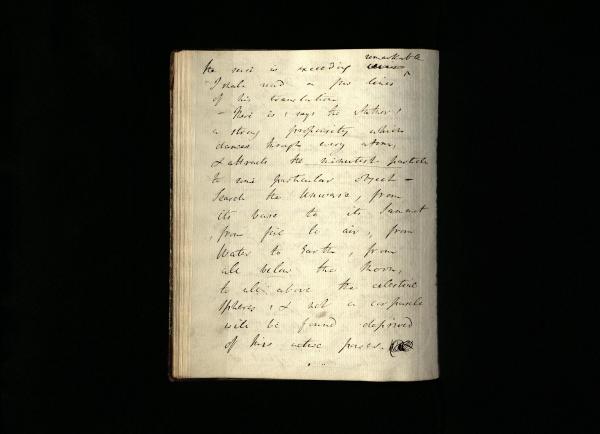 remarkable
the rest is exceeding curious
"I shall read a few lines
of his translation
– There is, says the Author,
a strong propensity which
dances through every atom,
& attracts the minutest particle
to some particular object –
Search the Universe, from
its base to its Summit
, from fire to air, from
Water to Earth, from
all below the Moon,
to all above the celestial
spheres, & not a corpuscle
will be found deprived
of this active power.